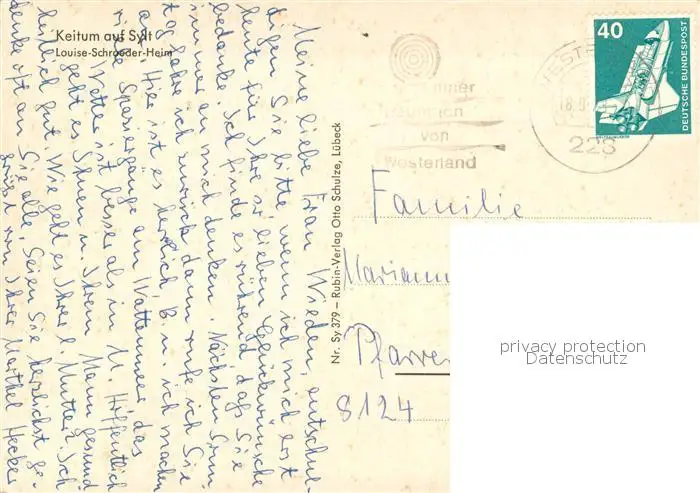 Keitum auf Sylt
Louise-Schroeder-Heim
Meine liebe Frau Wieden, entschul-
digen Sie bitte, wenn ich mich erst
heute für Ihre so lieben Genesungswünsche
bedanke. Ich finde es rührend, daß Sie
immer an mich denken. Nächsten Sonn-
tag fahre ich zurück dann rufe ich Sie
an. Hier ist es herrlich B. u. ich machen
viele Spaziergänge am Wattenmeer das
Wetter ist besser als in M. Hoffentlich
geht es Ihnen u. Ihrem Mann gesund-
heitlich gut. Wie geht es Ihrer l. Mutter? Ich
denke oft an Sie alle. Seien Sie herzlichst ge-
grüsst von Ihrer Marthel Hecker
Nr. Sy 379 – Rubin-Verlag Otto Schulze, Lübeck
von
Westerland
228
40
DEUTSCHE BUNDESPOST
Familie
Mariann
Pfarrer
8124
privacy protection
Datenschutz